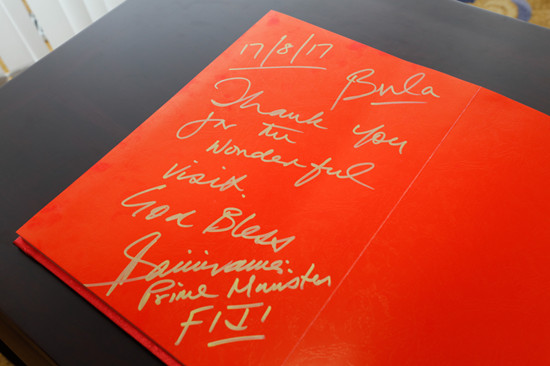 17/8/17
Bula
Thank you
for the
wonderful
visit.
God Bless
Bainimarama.
Prime Minister
FIJI